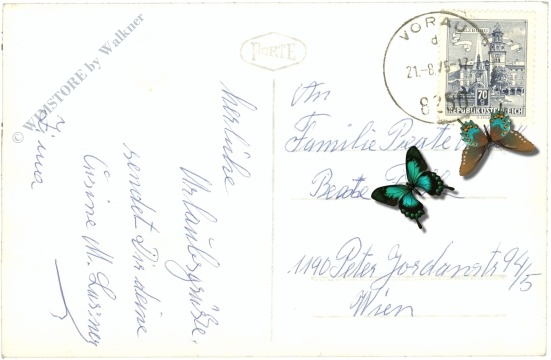 © WIMSTORE by Walkner
PORTE
VORAU
d
21.-8.75-17
8250
70
REPUBLIK ÖSTERREICH
Herzliche
Urlaubsgrüsse.
sendet Dir deine
Cusine M.
An
Familie
Beate
1190 Peter Jordanstr 94/5
Wien